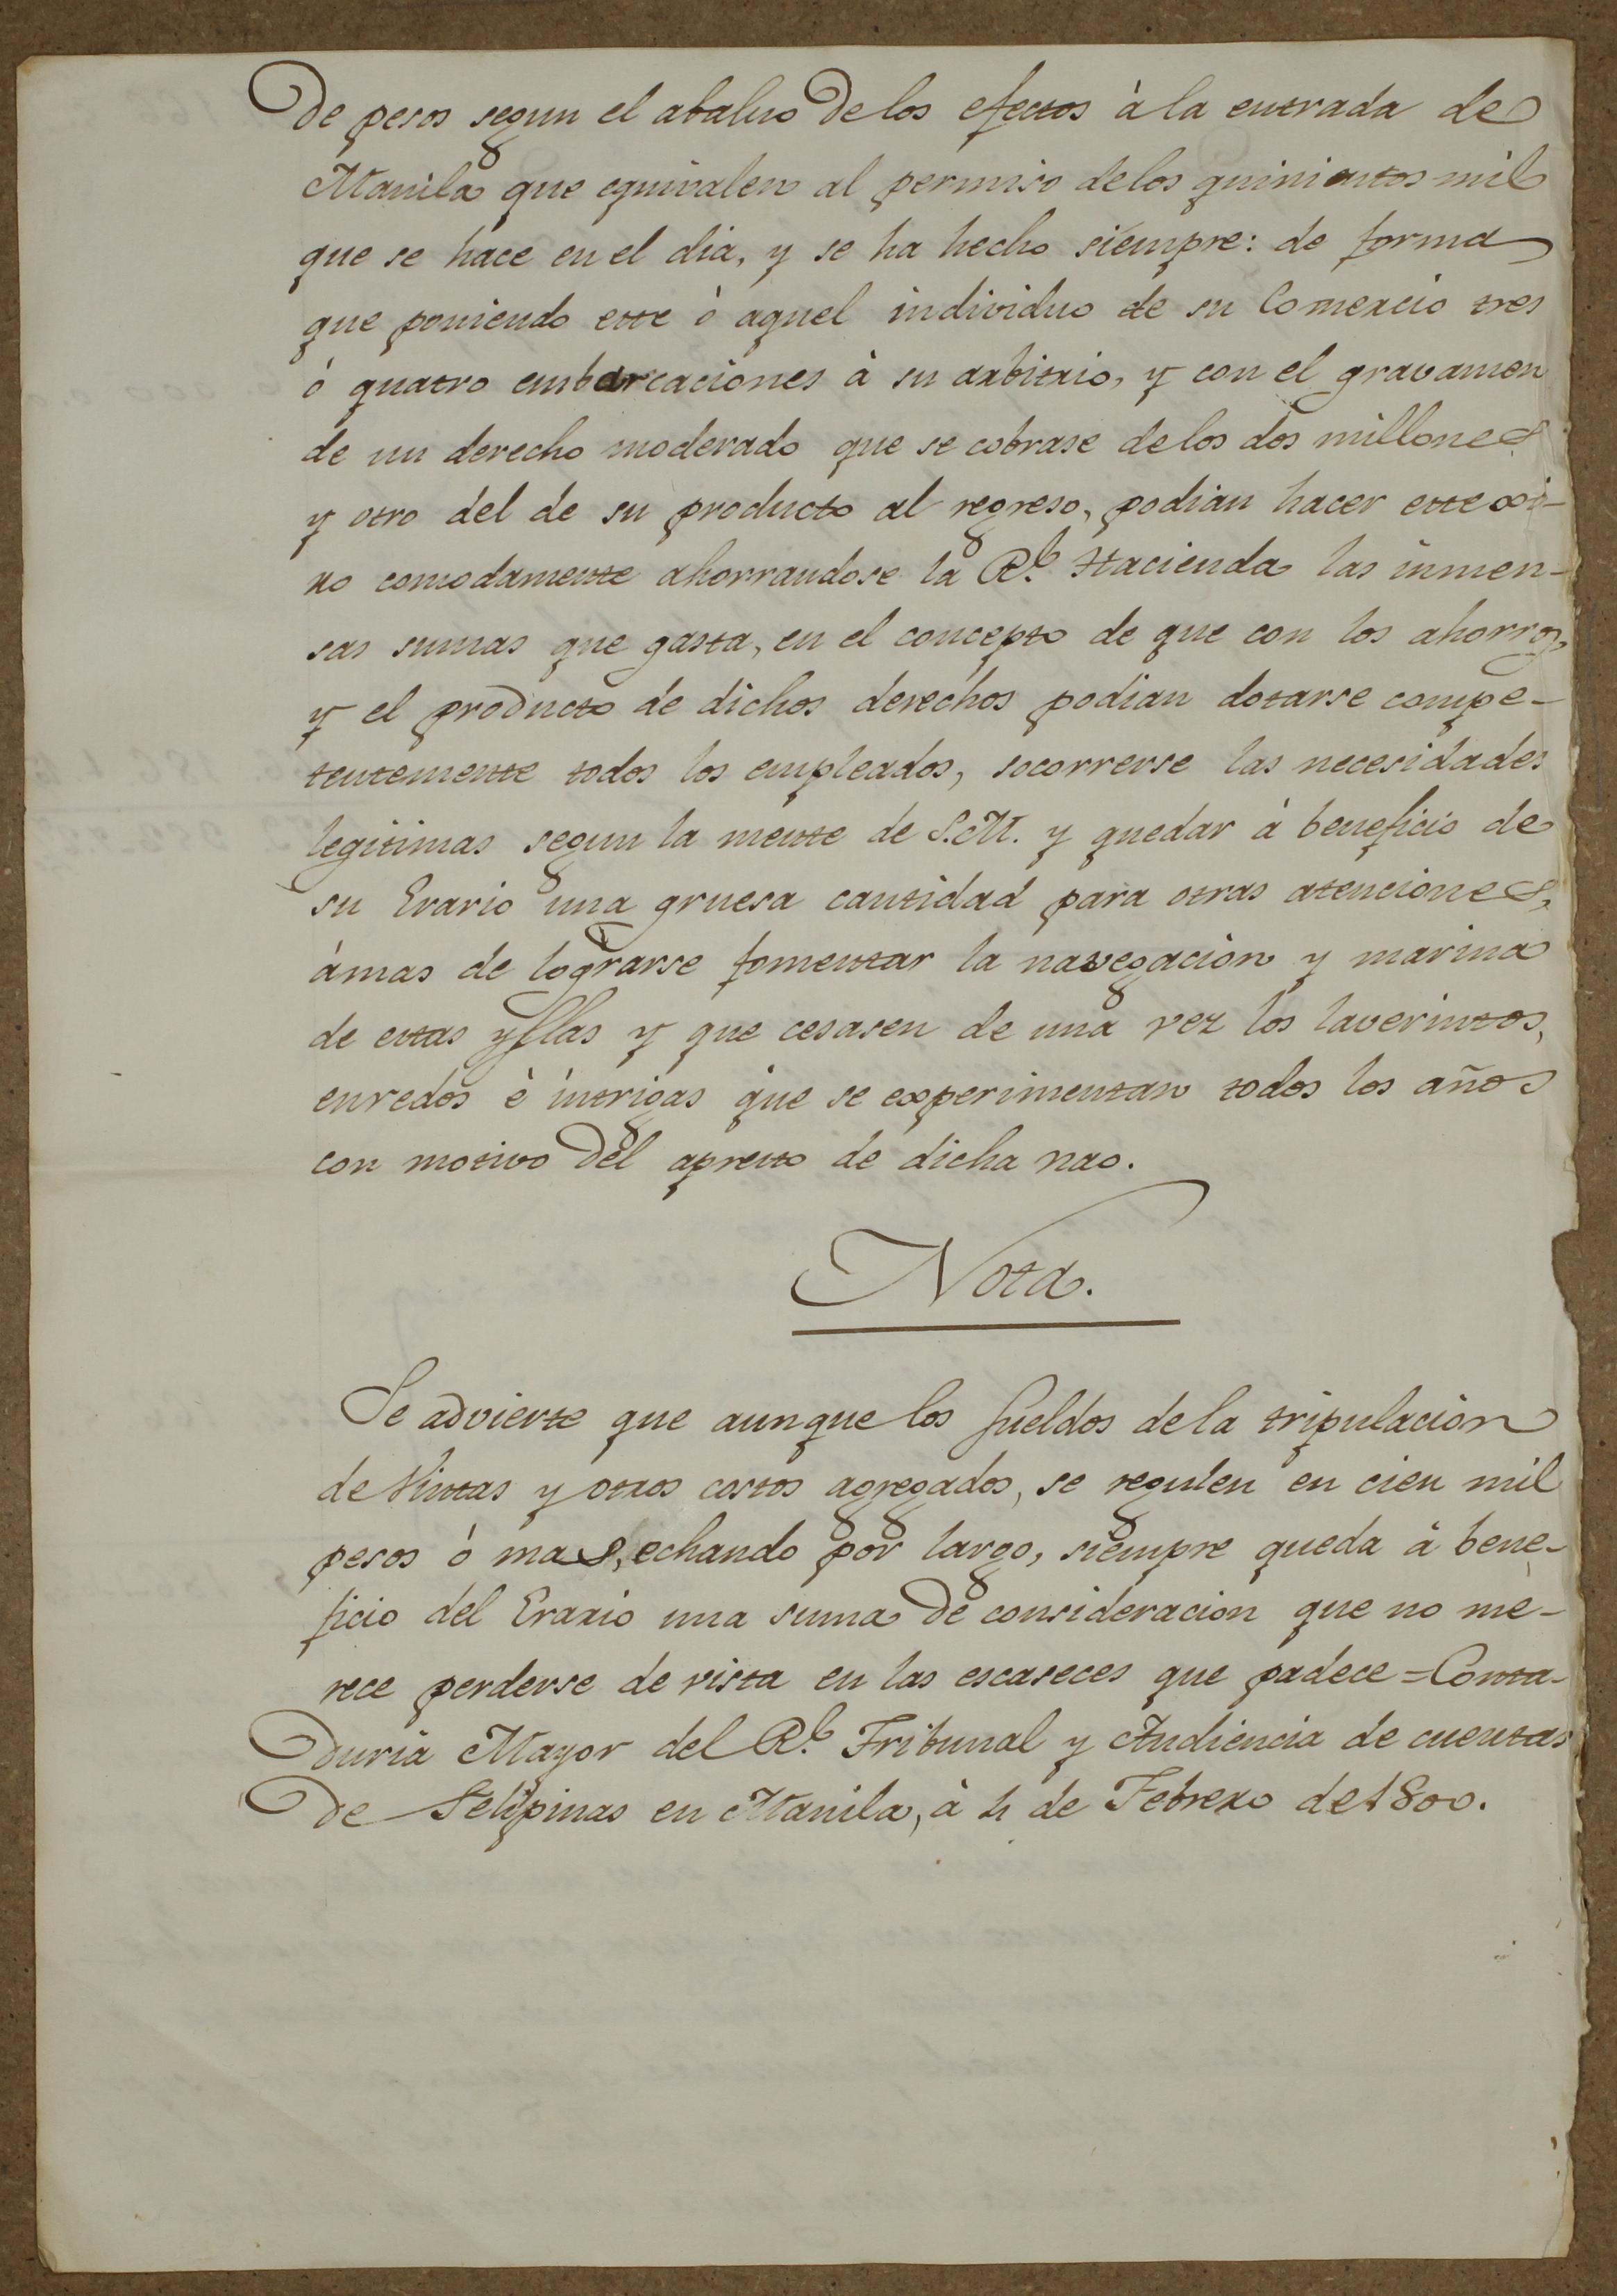 de pesos segun el abaluo de los efectos à la entrada de
Manila que equivalen al permiso de los quinientos mil
que se hace en el dia, y se ha hecho siempre: de forma
que poniendo este ò aquel individuo de su Comercio tres
ò quatro embarcaciones à su arbitrio, y con el gravamen
de un derecho moderado que se cobrase de los dos millones
y otro del de su producto al regreso, podian hacer este xi-
ro comodamente ahorrandose la Rl. Hacienda las inmen-
sas sumas que gasta, en el concepto de que con los ahorros,
y el producto de dichos derechos podian dotarse compe-
tentemente todos los empleados, socorrerse las necesidades
legitimas segun la mente de S.M. y quedar à beneficio de
su Erario una gruesa cantidad para otras atenciones,
àmas de lograrse fomentar la navegacion y marina
de estas yslas y que cesasen de una vez los laverintos,
enredos è intrigas que se experimentan todos los años
con motivo del apresto de dicha nao.
Nota.
Se advierte que aunque los sueldos de la tripulacion
de Vintas y otros costos agregados, se regulen en cien mil
pesos ò mas, echando por largo, siempre queda à bene-
ficio del Erario una suma de consideracion que no me-
rece perderse de vista en las escaseces que padece = Conta-
duria Mayor del Rl. Tribunal y Audiencia de cuentas
de Felipinas en Manila, à 4 de Febrero de 1800.